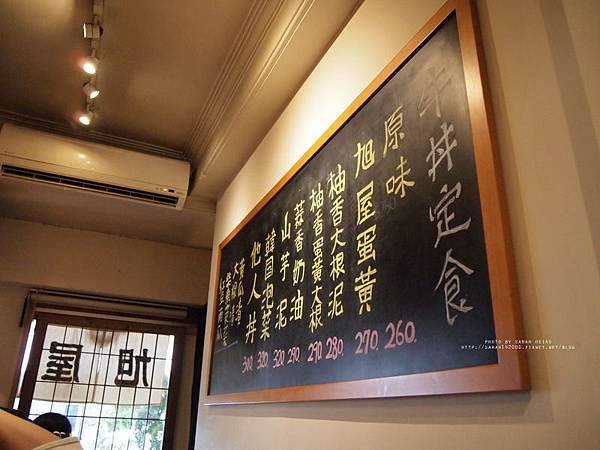 牛丼定食
原味 260.
旭屋蛋黃 270.
柚香大根泥 280.
柚香蛋黃大根 290
蒜香奶油 290.
山芋泥 320
韓国泡菜 320.
他人丼 340
旭屋
PHOTO BY SARAH HSIAO
HTTP://SARAH192000.PIXNET.NET/BLOG